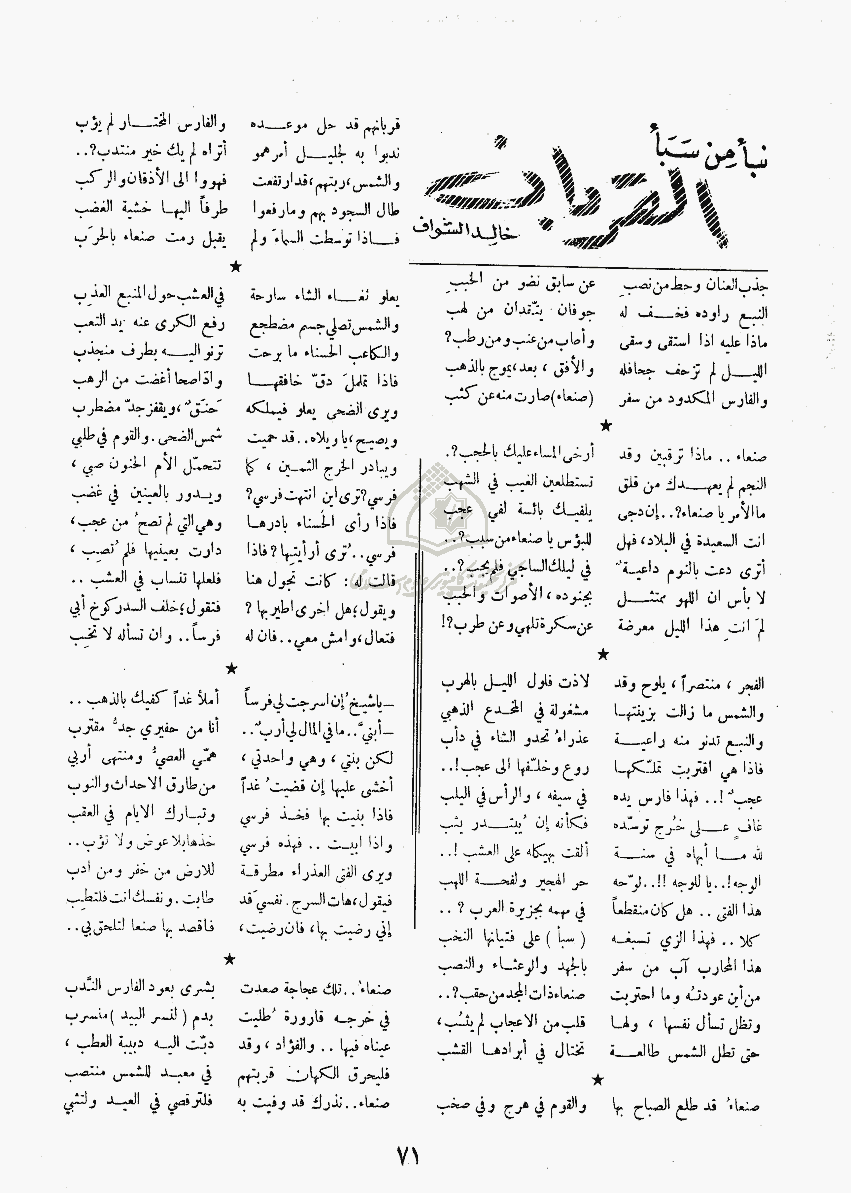 نبأ من سَبَأ
القربان
خالد الشواف
جذب العنان وحط من نصبِ عن سابق نضو من الحببِ
النبع راوده فخف له جوفان يتّقدان من لهب
ماذا عليه اذا استقى وسقى وأصاب من عنب ومن رطب؟
الليل لم تزحف جحافله والأفق ، بعد، يموج بالذهب
والفارس المكدود من سفر (صنعاء) صارت منه عن كثب
★
صنعاء . . ماذا ترقبين وقد أرخى المساء عليك بالحجب؟.
النجم لم يعهدك من قلق تستطلعين الغيب في الشهب
ما الأمر يا صنعاء؟.. إن دجى يلفيك بائسة لفي عجب
انت السعيدة في البلاد، فهل للبؤس يا صنعاء من سبب؟..
أترى دعت بالنوم داعية في ليلك الساجي فلم يجب؟..
لا بأس ان اللهو ممتثل بجنوده ، الأصوات والحبب
لمَ انتِ هذا الليل معرضة عن سكرة تلهي وعن طرب؟!
★
الفجر ، منتصراً ، يلوح وقد لاذت فلول الليل بالهرب
والشمس ما زالت بزينتها مشغولة في المخدع الذهبي
والنبع تدنو منه راعية عذراء تحدو الشاء في دأب
فاذا هي اقتربت تملّكها روع وخلّفها الى عجب!..
عجبٌ !.. فهذا فارس يده في سيفه ، والرأس في اليلب
غافٍ على خُرج توسّده فكأنه إن يُبتدر يثب
لله ما أبهاه في سنة ألقت بهيكله على العشب !..
الوجه!.. يا للوجه !!.. لوّحه حر الهجير ولفحة اللهب
هذا الفتى .. هل كان منقطعاً في مهمه بجزيرة العرب ؟ ..
كلا .. فهذا الزي تسبغه (سبأ) على فتيانها النخب
هذا المحارب آب من سفر بالجهد والوعثاء والنصب
من أين عودته وما احتربت صنعاء ذات المجد من حقب؟..
وتظل تسأل نفسها ، ولها قلب من الاعجاب لم يثب،
حتى تطل الشمس طالعة تختال في أبرادها القشب
★
صنعاءُ قد طلع الصباح بها والقوم في هرج وفي صخب
قربانهم قد حل موعده والفارس المختار لم يؤب
ندبوا به لجليل أمرهمو أتراه لم يك خير منتدب؟..
والشمس، ربتهم، قد ارتفعت فهووا الى الأذقان والركب
طال السجود بهم وما رفعوا طرفاً اليها خشية الغضب
فاذا توسطت السماء ولم يقبل رمت صنعاء بالحرَب
★
يعلو ثغاء الشاء سارحة في العشب حول المنبع العذب
والشمس تصلي جسم مضطجع رفع الكرى عنه يد التعب
والكاعب الحسناء ما برحت ترنو اليه بطرف منجذب
فاذا تململَ دقّ خافقها واذا صحا أغضت من الرهب
ويرى الضحى يعلو فيملكه حَنَقٌ ، ويقفز جدّ مضطرب
ويصيح، يا ويلاه .. قد حميت شمس الضحى . والقوم في طلبي
ويبادر الخرج الثمين ، كما تتحمّل الأم الحنون صبي ،
فرسي؟ ترى اين انتهت فرسي؟ ويدور بالعينين في غضب
فاذا رأى الحسناء بادرها وهي التي لم تصح من عجب،
فرسي..؟ ترى أرأيتِها؟ فاذا دارت بعينيها فلم تُصب ،
قالت له : كانت تجول هنا فلعلها تنساب في العشب ..
ويقول، هل اخرى اطير بها ؟ فتقول، خلف السدر كوخ أبي
فتعال، وامش معي.. فان له فرساً.. وان تسأله لا تخب
★
ـ يا شيخُ إن اسرجت لي فرساً أملأ غداً كفيك بالذهب ..
ـ أبنيّ.. ما في المال لي أربٌ.. أنا من حفيري جدُّ مقترب
لكن بنتي ، وهي واحدتي ، همّي العصيُّ ومنتهى أربي
أخشى عليها إن قضيتُ غداً من طارق الاحداث والنوب
فاذا بنيت بها فخذ فرسي وتبارك الايام في العقب
واذا ابيت .. فهذه فرسي خذها بلا عوض ولا تؤب ..
ويرى الفتى العذراء مطرقة للارض من خفر ومن ادب
فيقول، هات السرج . نفسي قد طابت . ونفسك انت فلتطب
إني رضيت بها، فان رضيت، فاقصد بها صنعا لتلحق بي..
★
صنعاء.. تلك عجاجة صعدت بشرى بعود الفارس النَّدب
في خرجه قارورة طُليت بدم (لنسر البيد) منسرب
عيناه فيها .. والفؤاد ، وقد دبّت اليه دبيبة العطب ،
فليحرق الكهان قربتهم في معبد للشمس منتصب
صنعاء.. نذرك قد وفيت به فلترقصي في العيد ولتثبي
٧١